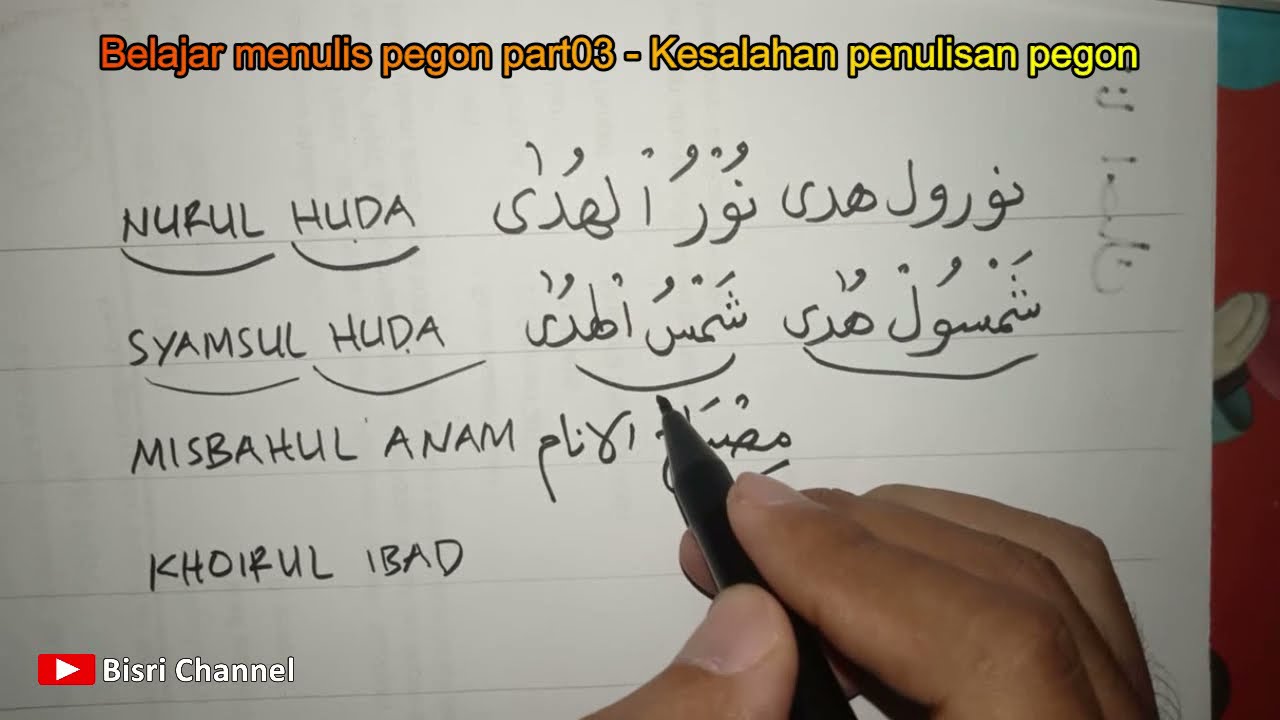 Belajar menulis pegon part03 - Kesalahan penulisan pegon
NURUL HUDA نُوْرُ الهُدٰى نورول هدى
SYAMSUL HUDA شَمْسُ الهُدٰى شَمْسُولْ هُدٰى
MISBAHUL ANAM الانام
KHOIRUL IBAD
Bisri Channel